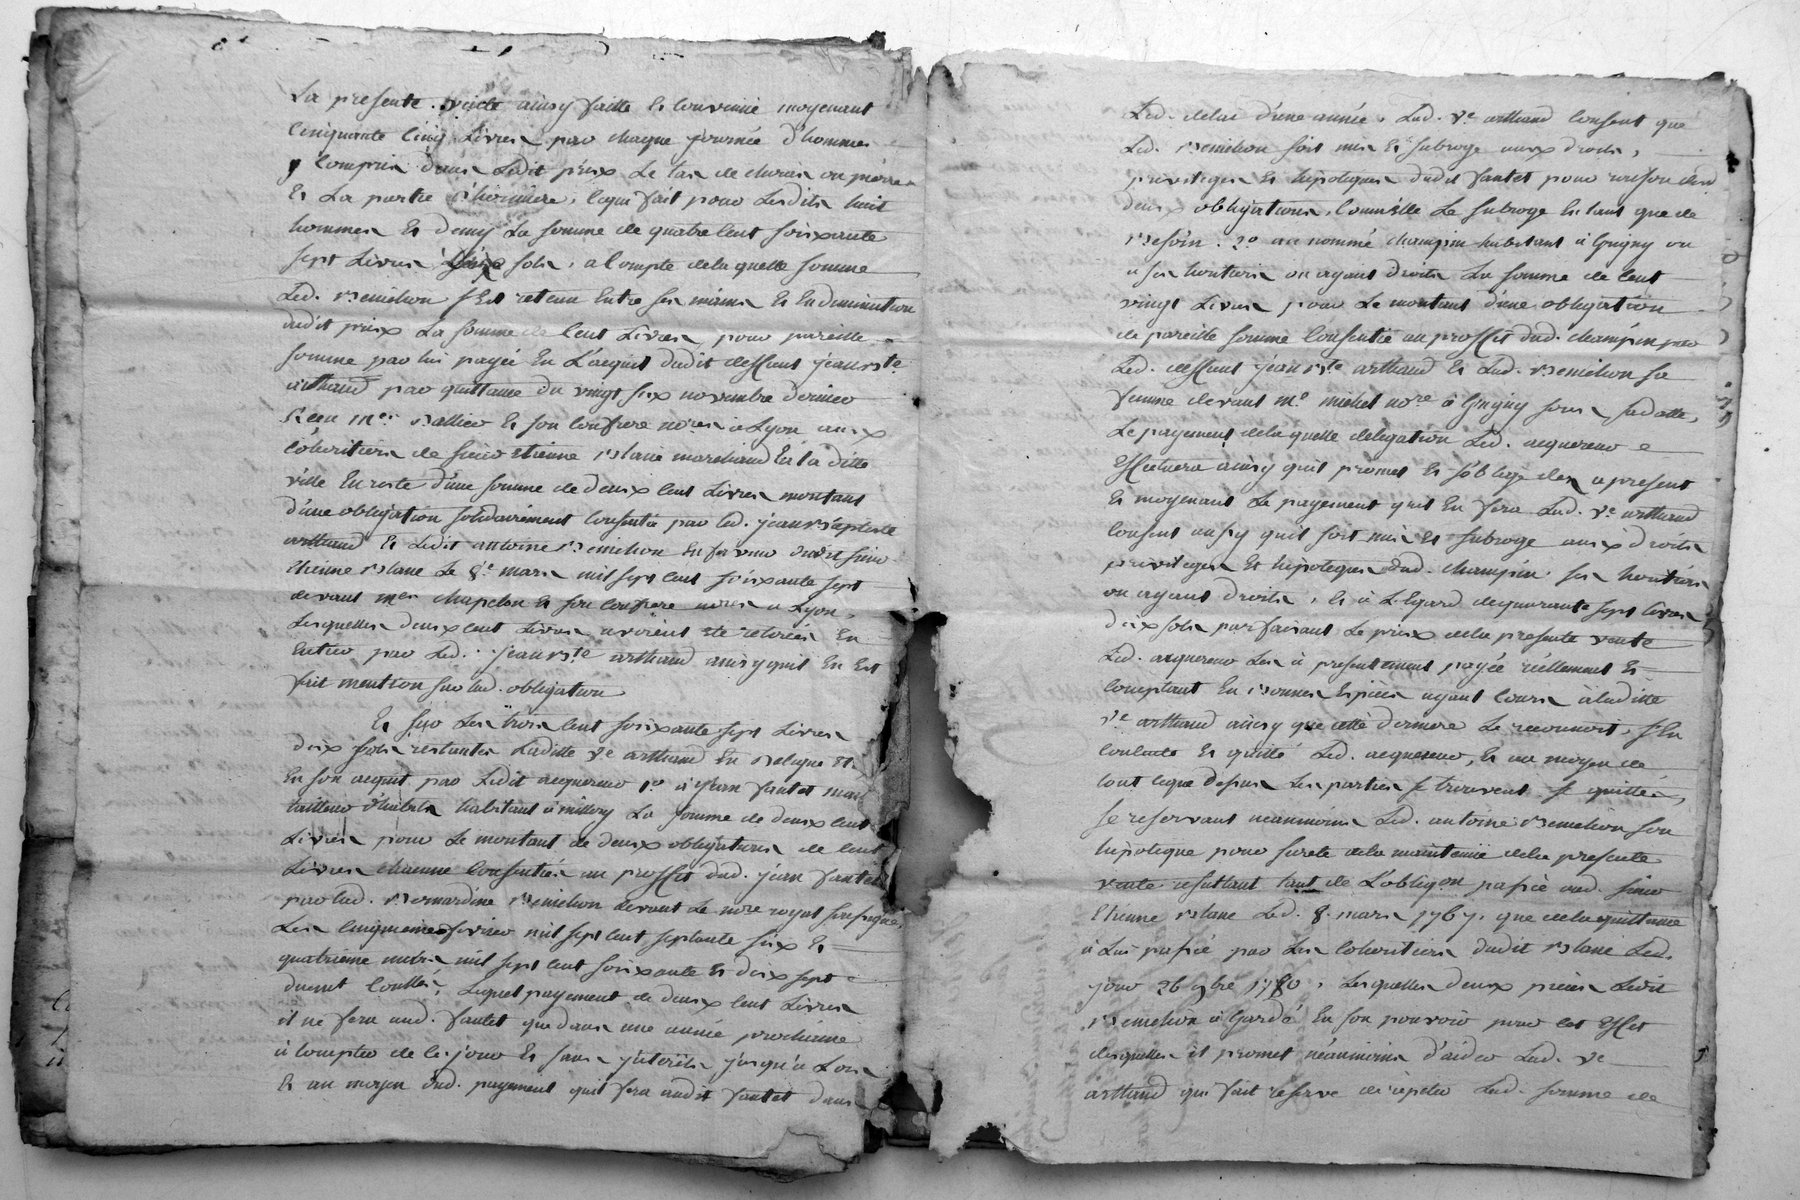 La presente vente ainsy faitte et convenue moyenant
Cinquante cinq Livres par chaque journée d'hommes
y compris dans Ledit prix Le tas de chiras ou pierres
Et La partie d'hermiere, cequi fait pour Lesdits huit
hommes Et demy La somme de quatre cent soixante
sept Livres dix sols, a Compte dela quelle somme
Led. Bemelion s'Est retenu Entre ses mains et En diminution
dudit prix La somme de Cent Livres, pour pareille
somme par lui payée En L'acquit dudit deffunt jean Bte
arthaud par quittance du vingt six novembre dernier
Recu Mes Ballier Et son confrere nores a Lyon aux
Cohoritiers de sieur Etienne Blanc marchand En la ditte
ville En reste d'une somme de deux cent Livres montant
d'une obligation solidairement consentie par led. jean Baptiste
arthaud Et Ledit antoine Bemelion En faveur dudit sieur
Etienne Blanc Le 8e mars mil sept cent soixante sept
devant Mes chapelon Et son confrere nores a Lyon,
Lesquelles deux cent Livres avoient été retirées En
Entier par Led. jean Bte arthaud ainsy quil En Est
fait mention sur lad. obligation
Et pour Les trois cent soixante sept Livres
dix sols restantes Laditte Ve arthaud En delegue Et
En son acquit par Ledit acquereur 1o à jean fantet
tailleur d'habits habitant à millery La somme de deux cent
Livres pour Le montant de deux obligations de Cent
Livres chacune Consenties au proffit dud. jean fantet
par lad. Bernardine Bemelion devant Le nore royal soussigné,
Les cinquieme fevrier mil sept cent septante six Et
quatrieme mil sept cent soixante Et dix sept
duement Contlées, Lequel payement de deux cent Livres
il ne fera aud. fantet que dans une année prochaine
à compter de ce jour Et sans jnterêts jusqu'a Lors
Et au moyen dud. payement quil fera audit fantet dans
Led. delai d'une année, Lad. Ve arthaud consent que
Led. Bemelion soit mis Et subrogé aux droits,
privileges Et hipoteques dudit fantet pour raison desd.
deux obligations, Comm'Elle Le subroge En tant que de
Besoin. 2o au nommé champin habitant à Grigny ou
a ses hoiritiers ou ayants droits La somme de Cent
vingt Livres pour Le montant d'une obligation
de pareille somme Consentie au proffit dud. champin par
Led. deffunt jean Bte arthaud Et Lad. Bemelion sa
femme devant Me michel nore à Grigny sous sa datte,
Le payement dela quelle delegation Led. acquereur
Effectuera ainsy quil promet Et s'oblige des a present
Et moyenant Le payement quil En fera Lad. Ve arthaud
consent aussy quil soit mis Et subrogé aux droits
privileges Et hipoteques dud. champin, ses hoiritiers
ou ayants droits, Et à L'Egard de quarante sept Livres
dix sols parfaisant Le prix dela presente vente
Led. acquereur Les à presentement payée réellement Et
comptant En Bonnes Espéces ayant cours à laditte
Ve arthaud ainsy que cette derniere Le reconnoit, s'En
contente Et quitte Led. acquereur, Et au moyen de
tout ceque dessus Les parties se trouvent quittés,
se reservant néanmoins Led. antoine Bemelion son
hipoteque pour sureté dela maintenüe dela presente
vente resultant tant de L'obligon passée aud. sieur
Etienne Blanc Led. 8. mars 1767. que dela quittance
à Lui passée par Les Cohoritiers dudit Blanc Led.
jour 26 9bre 1780, Lesquelles deux pieces Ledit
Bemelion à Gardé En son pouvoir pour cet Effet
desquelles il promet néanmoins d'aider Lad. Ve
arthaud qui fait reserve de répeter Lad. somme de